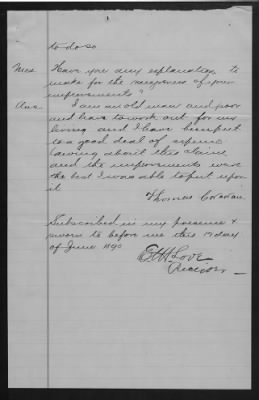 to do so
Ques Have you any explanation to
make for the meagerness of your
improvements"
Ans. I am an old man and poor
and have to work out for my
living and I have been put
to a good deal of expense
lawing about this claim
and the improvements were
the best I was able to put upon
it
Thomas
Subscribed in my presence &
sworn to before me this 17 day
of June 1890
Love
Receiver